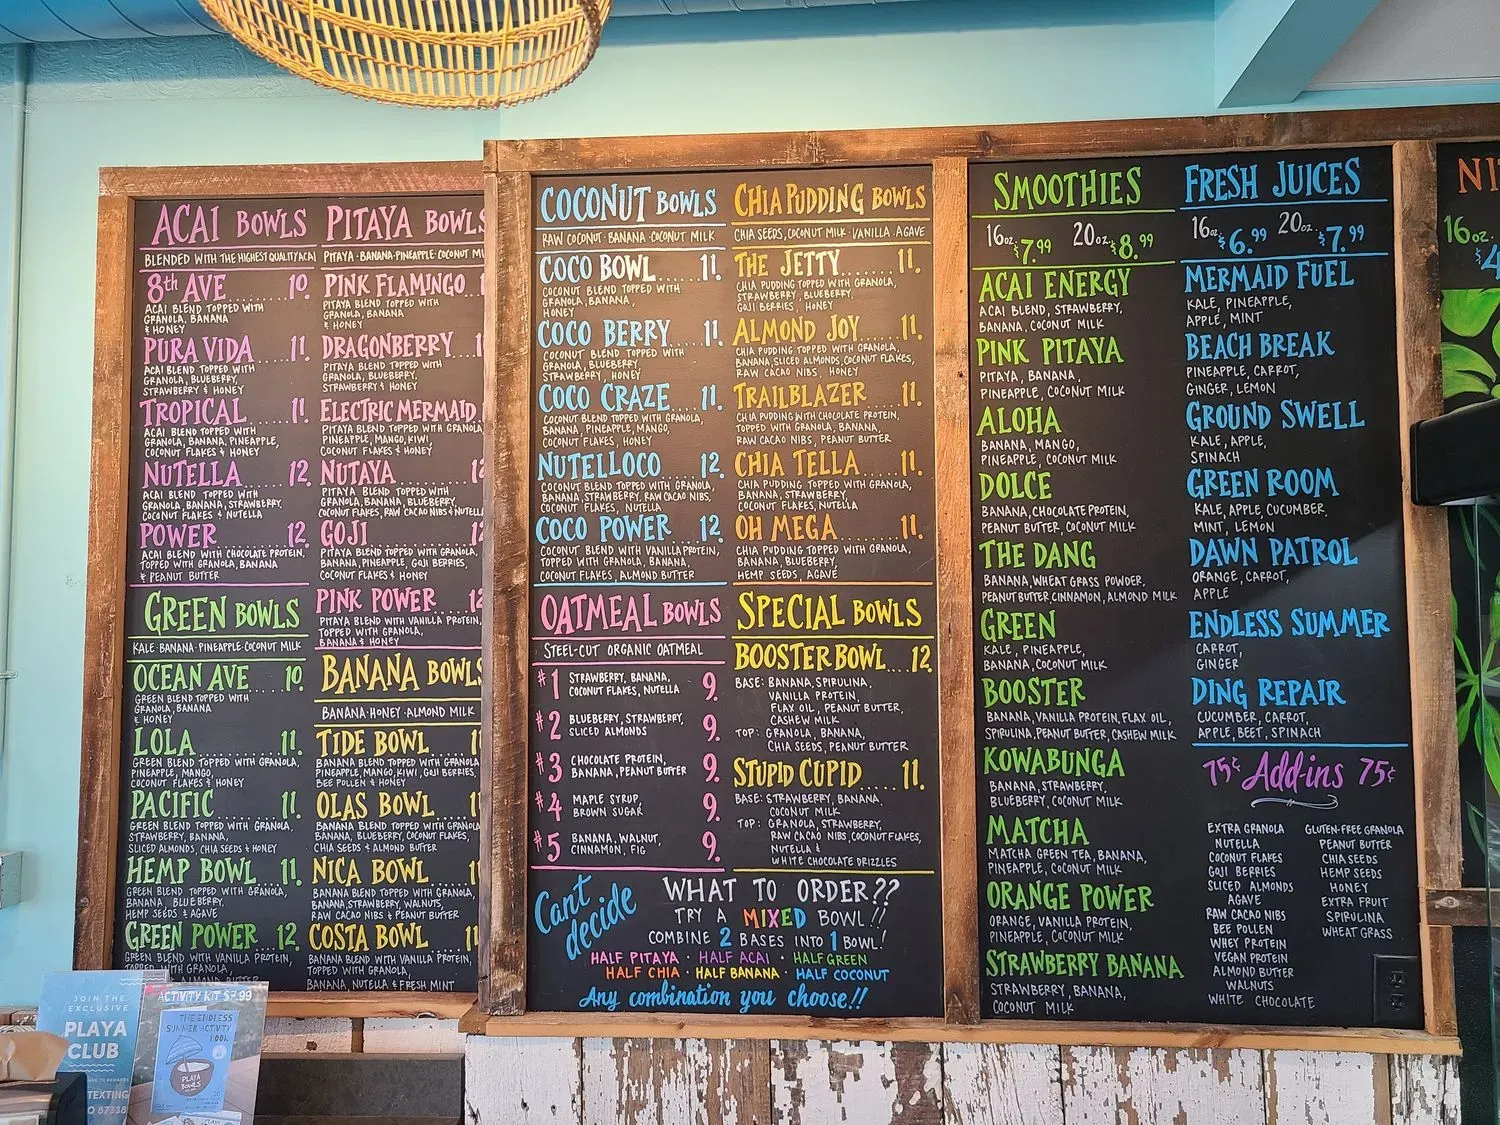 ACAI BOWLS
BLENDED WITH THE HIGHEST QUALITY ACAI
8th AVE 10.
ACAI BLEND TOPPED WITH
GRANOLA, BANANA
& HONEY
PURA VIDA 11.
ACAI BLEND TOPPED WITH
GRANOLA, BLUEBERRY,
STRAWBERRY & HONEY
TROPICAL 11.
ACAI BLEND TOPPED WITH
GRANOLA, BANANA, PINEAPPLE,
COCONUT FLAKES & HONEY
NUTELLA 12.
ACAI BLEND TOPPED WITH
GRANOLA, BANANA, STRAWBERRY,
COCONUT FLAKES & NUTELLA
POWER 12.
ACAI BLEND WITH CHOCOLATE PROTEIN,
TOPPED WITH GRANOLA, BANANA
& PEANUT BUTTER
GREEN BOWLS
KALE·BANANA·PINEAPPLE·COCONUT MILK
OCEAN AVE 10.
GREEN BLEND TOPPED WITH
GRANOLA, BANANA
& HONEY
LOLA 11.
GREEN BLEND TOPPED WITH GRANOLA,
PINEAPPLE, MANGO,
COCONUT FLAKES & HONEY
PACIFIC 11.
GREEN BLEND TOPPED WITH GRANOLA,
STRAWBERRY, BANANA,
SLICED ALMONDS, CHIA SEEDS & HONEY
HEMP BOWL 11.
GREEN BLEND TOPPED WITH GRANOLA,
BANANA, BLUEBERRY,
HEMP SEEDS & AGAVE
GREEN POWER 12.
GREEN BLEND WITH VANILLA PROTEIN,
TOPPED WITH GRANOLA,
ALMOND BUTTER
PITAYA BOWLS
PITAYA·BANANA·PINEAPPLE·COCONUT MI
PINK FLAMINGO 1
PITAYA BLEND TOPPED WITH
GRANOLA, BANANA
& HONEY
DRAGONBERRY 1
PITAYA BLEND TOPPED WITH
GRANOLA, BLUEBERRY,
STRAWBERRY & HONEY
ELECTRIC MERMAID
PITAYA BLEND TOPPED WITH GRANOLA,
PINEAPPLE, MANGO, KIWI,
COCONUT FLAKES & HONEY
NUTAYA 12
PITAYA BLEND TOPPED WITH
GRANOLA, BANANA, BLUEBERRY,
COCONUT FLAKES, RAW CACAO NIBS & NUTELL
GOJI 12
PITAYA BLEND TOPPED WITH GRANOLA,
BANANA, PINEAPPLE, GOJI BERRIES,
COCONUT FLAKES & HONEY
PINK POWER 12
PITAYA BLEND WITH VANILLA PROTEIN,
TOPPED WITH GRANOLA,
BANANA & HONEY
BANANA BOWLS
BANANA·HONEY·ALMOND MILK
TIDE BOWL 11
BANANA BLEND TOPPED WITH GRANOLA,
PINEAPPLE, MANGO, KIWI, GOJI BERRIES,
BEE POLLEN & HONEY
OLAS BOWL 11
BANANA BLEND TOPPED WITH GRANOLA,
BANANA, BLUEBERRY, COCONUT FLAKES,
CHIA SEEDS & ALMOND BUTTER
NICA BOWL 11
BANANA BLEND TOPPED WITH GRANOLA,
BANANA, STRAWBERRY, WALNUTS,
RAW CACAO NIBS & PEANUT BUTTER
COSTA BOWL 11
BANANA BLEND WITH VANILLA PROTEIN,
TOPPED WITH GRANOLA,
BANANA, NUTELLA & FRESH MINT
COCONUT BOWLS
RAW COCONUT·BANANA·COCONUT MILK
COCO BOWL 11.
COCONUT BLEND TOPPED WITH
GRANOLA, BANANA,
HONEY
COCO BERRY 11.
COCONUT BLEND TOPPED WITH
GRANOLA, BLUEBERRY,
STRAWBERRY, HONEY
COCO CRAZE 11.
COCONUT BLEND TOPPED WITH GRANOLA,
BANANA, PINEAPPLE, MANGO,
COCONUT FLAKES, HONEY
NUTELLOCO 12.
COCONUT BLEND TOPPED WITH GRANOLA,
BANANA, STRAWBERRY, RAW CACAO NIBS,
COCONUT FLAKES, NUTELLA
COCO POWER 12.
COCONUT BLEND WITH VANILLA PROTEIN,
TOPPED WITH GRANOLA, BANANA,
COCONUT FLAKES, ALMOND BUTTER
OATMEAL BOWLS
STEEL-CUT ORGANIC OATMEAL
#1 STRAWBERRY, BANANA,
COCONUT FLAKES, NUTELLA 9.
#2 BLUEBERRY, STRAWBERRY,
SLICED ALMONDS 9.
#3 CHOCOLATE PROTEIN,
BANANA, PEANUT BUTTER 9.
#4 MAPLE SYRUP,
BROWN SUGAR 9.
#5 BANANA, WALNUT,
CINNAMON, FIG 9.
CHIA PUDDING BOWLS
CHIA SEEDS, COCONUT MILK·VANILLA·AGAVE
THE JETTY 11.
CHIA PUDDING TOPPED WITH GRANOLA,
STRAWBERRY, BLUEBERRY,
GOJI BERRIES, HONEY
ALMOND JOY 11.
CHIA PUDDING TOPPED WITH GRANOLA,
BANANA, SLICED ALMONDS, COCONUT FLAKES,
RAW CACAO NIBS, HONEY
TRAILBLAZER 11.
CHIA PUDDING WITH CHOCOLATE PROTEIN,
TOPPED WITH GRANOLA, BANANA,
RAW CACAO NIBS, PEANUT BUTTER
CHIA TELLA 11.
CHIA PUDDING TOPPED WITH GRANOLA,
BANANA, STRAWBERRY,
COCONUT FLAKES, NUTELLA
OH MEGA 11.
CHIA PUDDING TOPPED WITH GRANOLA,
BANANA, BLUEBERRY,
HEMP SEEDS, AGAVE
SPECIAL BOWLS
BOOSTER BOWL 12.
BASE: BANANA, SPIRULINA,
VANILLA PROTEIN,
FLAX OIL, PEANUT BUTTER,
CASHEW MILK
TOP: GRANOLA, BANANA,
CHIA SEEDS, PEANUT BUTTER
STUPID CUPID 11.
BASE: STRAWBERRY, BANANA,
COCONUT MILK
TOP: GRANOLA, STRAWBERRY,
RAW CACAO NIBS, COCONUT FLAKES,
NUTELLA &
WHITE CHOCOLATE DRIZZLES
Can't decide
WHAT TO ORDER??
TRY A MIXED BOWL!!
COMBINE 2 BASES INTO 1 BOWL!
HALF PITAYA · HALF ACAI · HALF GREEN
HALF CHIA · HALF BANANA · HALF COCONUT
Any combination you choose!!
SMOOTHIES
16oz. $7.99 20oz. $8.99
ACAI ENERGY
ACAI BLEND, STRAWBERRY,
BANANA, COCONUT MILK
PINK PITAYA
PITAYA, BANANA,
PINEAPPLE, COCONUT MILK
ALOHA
BANANA, MANGO,
PINEAPPLE, COCONUT MILK
DOLCE
BANANA, CHOCOLATE PROTEIN,
PEANUT BUTTER, COCONUT MILK
THE DANG
BANANA, WHEAT GRASS POWDER,
PEANUT BUTTER, CINNAMON, ALMOND MILK
GREEN
KALE, PINEAPPLE,
BANANA, COCONUT MILK
BOOSTER
BANANA, VANILLA PROTEIN, FLAX OIL,
SPIRULINA, PEANUT BUTTER, CASHEW MILK
KOWABUNGA
BANANA, STRAWBERRY,
BLUEBERRY, COCONUT MILK
MATCHA
MATCHA GREEN TEA, BANANA,
PINEAPPLE, COCONUT MILK
ORANGE POWER
ORANGE, VANILLA PROTEIN,
PINEAPPLE, COCONUT MILK
STRAWBERRY BANANA
STRAWBERRY, BANANA,
COCONUT MILK
FRESH JUICES
16oz. $6.99 20oz. $7.99
MERMAID FUEL
KALE, PINEAPPLE,
APPLE, MINT
BEACH BREAK
PINEAPPLE, CARROT,
GINGER, LEMON
GROUND SWELL
KALE, APPLE,
SPINACH
GREEN ROOM
KALE, APPLE, CUCUMBER,
MINT, LEMON
DAWN PATROL
ORANGE, CARROT,
APPLE
ENDLESS SUMMER
CARROT,
GINGER
DING REPAIR
CUCUMBER, CARROT,
APPLE, BEET, SPINACH
75¢ Add-ins 75¢
EXTRA GRANOLA
NUTELLA
COCONUT FLAKES
GOJI BERRIES
SLICED ALMONDS
AGAVE
RAW CACAO NIBS
BEE POLLEN
WHEY PROTEIN
VEGAN PROTEIN
ALMOND BUTTER
WALNUTS
WHITE CHOCOLATE
GLUTEN-FREE GRANOLA
PEANUT BUTTER
CHIA SEEDS
HEMP SEEDS
HONEY
EXTRA FRUIT
SPIRULINA
WHEAT GRASS
NI
16oz.
$4
JOIN THE
EXCLUSIVE
PLAYA
CLUB
TEXTING
O 87338
ACTIVITY KIT $7.99
THE ENDLESS
SUMMER ACTIVITY
BOOK
PLAYA
BOWLS